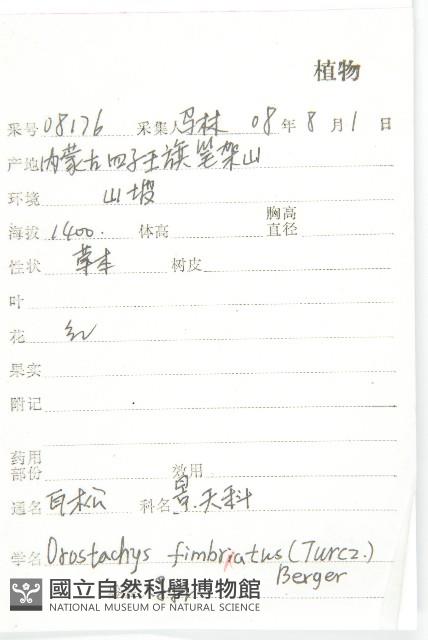 植物
采号 08176 采集人 马林 08 年 8 月 1 日
产地 内蒙古四子王旗笔架山
环境 山坡
海拔 1400. 体高 胸高直径
性状 草本 树皮
叶
花 红
果实
附记
药用部份 效用
通名 瓦松 科名 景天科
学名 Orostachys fimbriatus (Turcz.)
Berger
國立自然科學博物館
NATIONAL MUSEUM OF NATURAL SCIENCE